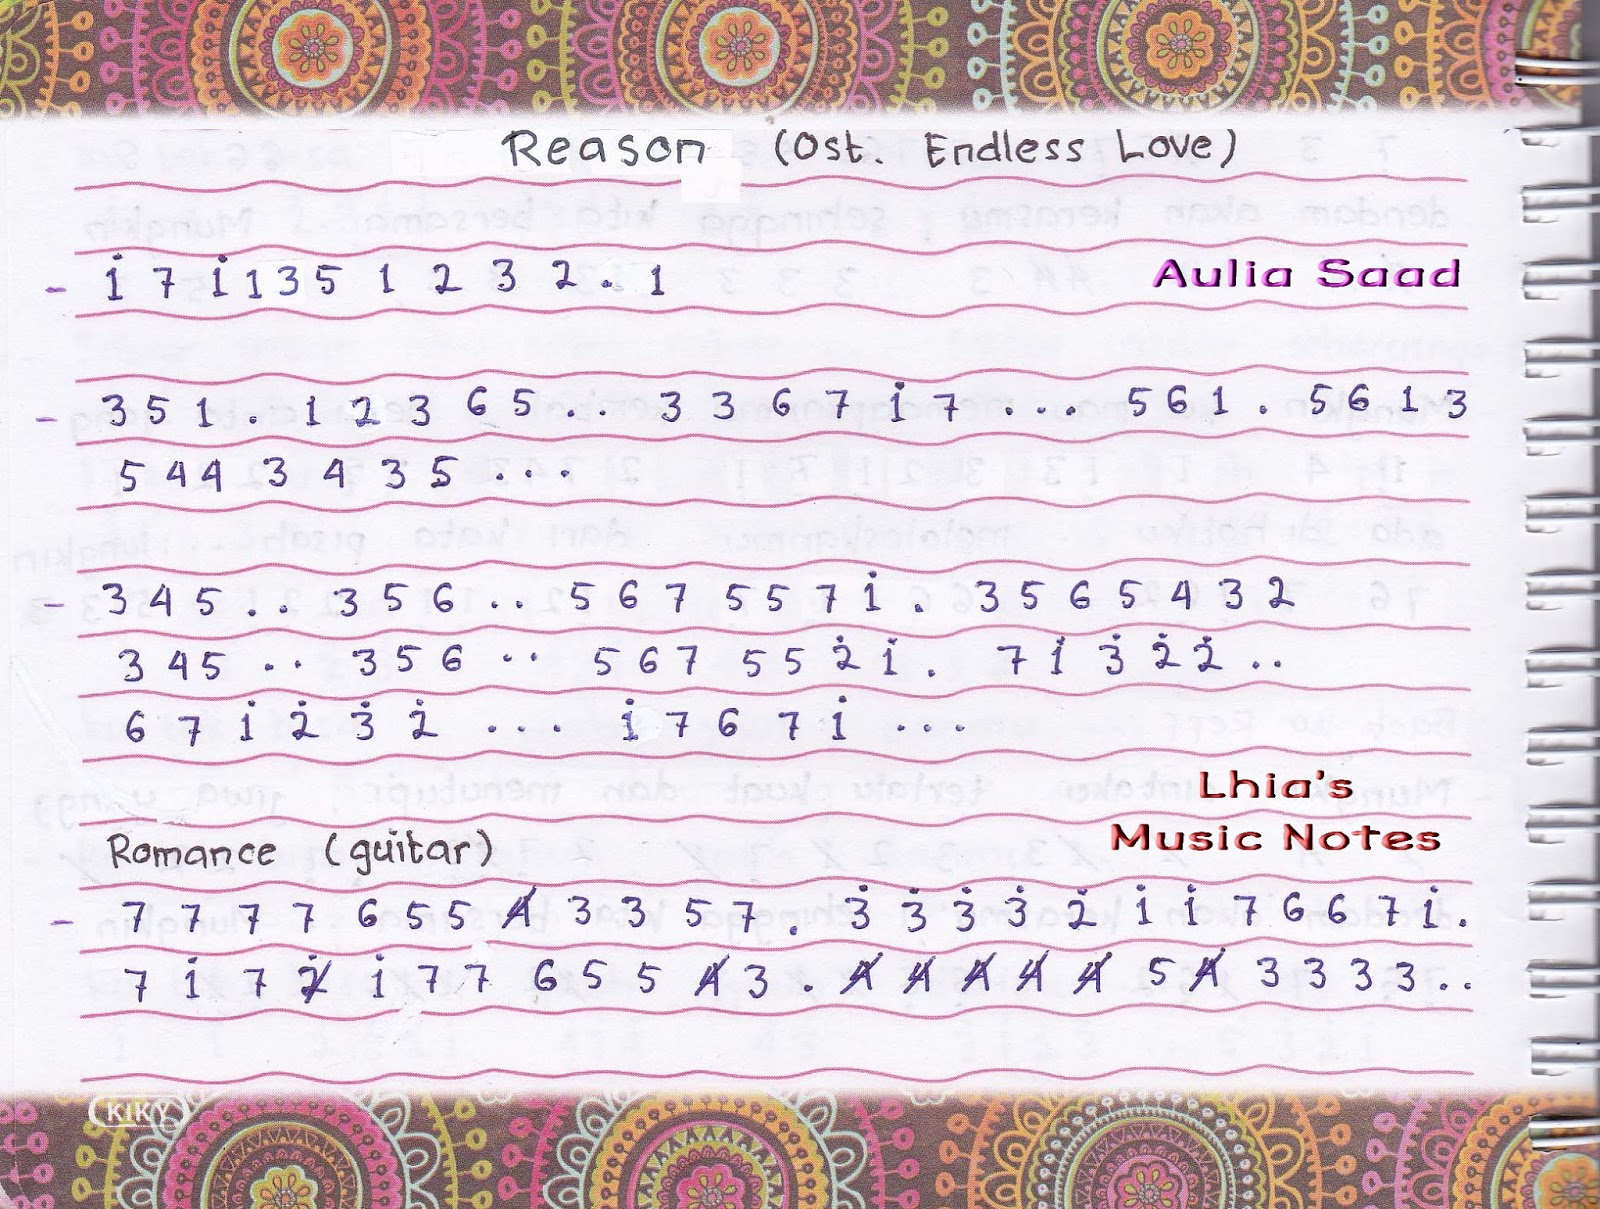 Reason (Ost. Endless Love)
- i̇ 7 i̇ 1 3 5 1 2 3 2 . 1
Aulia Saad
- 3 5 1 . 1 2 3 6 5 . . 3 3 6 7 i̇ 7 . . . 5 6 1 . 5 6 1 3
5 4 4 3 4 3 5 . . .
- 3 4 5 . . 3 5 6 . . 5 6 7 5 5 7 i̇ . 3 5 6 5 4 3 2
3 4 5 . . 3 5 6 . . 5 6 7 5 5 2̇ i̇ . 7 i̇ 3̇ 2̇ 2̇ . .
6 7 i̇ 2̇ 3̇ 2̇ . . . i̇ 7 6 7 i̇ . . .
Lhia's
Music Notes
Romance (guitar)
- 7 7 7 7 6 5 5 4̸ 3 3 5 7 . 3̇ 3̇ 3̇ 3̇ 2̇ i̇ i̇ 7 6 6 7 i̇ .
7 i̇ 7 2̸̇ i̇ 7 7 6 5 5 4̸ 3 . 4̸ 4̸ 4̸ 4̸ 4̸ 5 4̸ 3 3 3 3 . .
KIKY